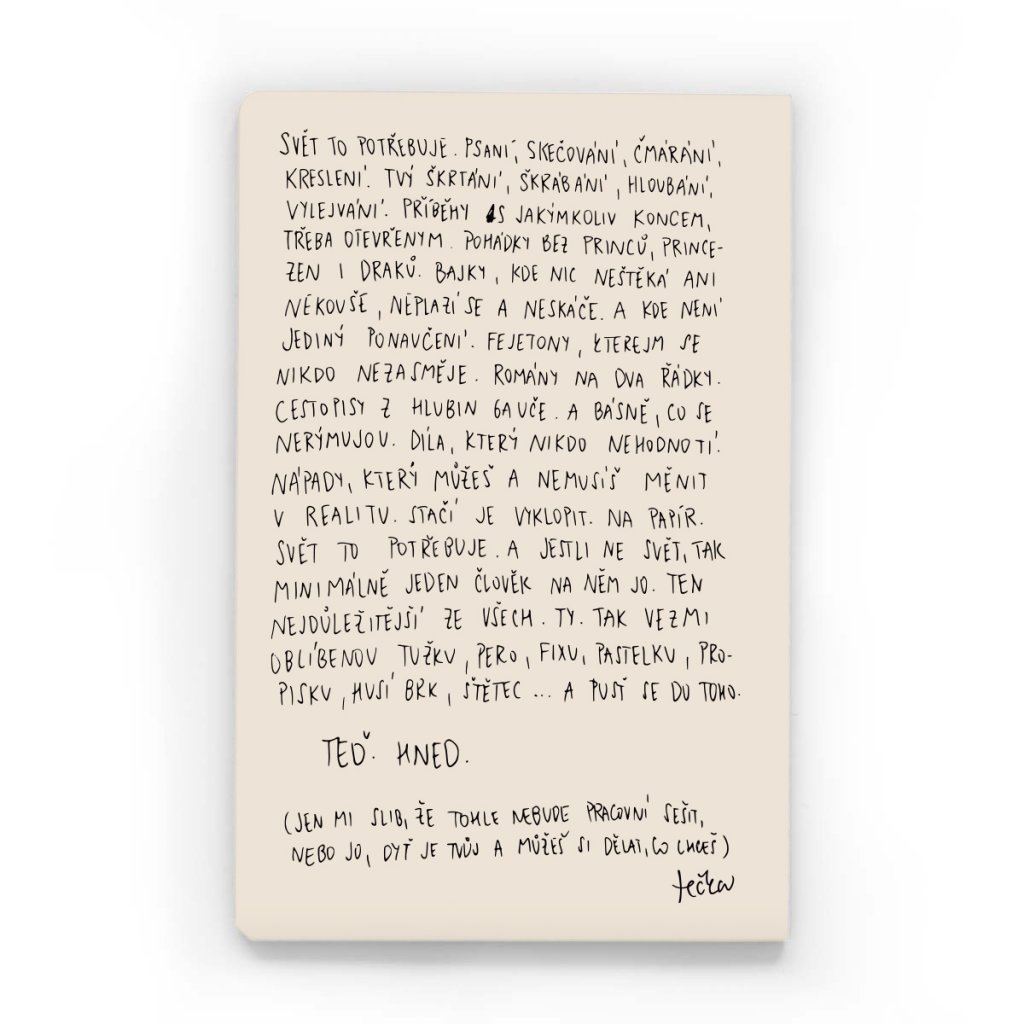 SVĚT TO POTŘEBUJE. PSANÍ, SKEČOVÁNÍ, ČMÁRÁNÍ,
KRESLENÍ. TVÝ ŠKRTÁNÍ, ŠKRÁBÁNÍ, HLOUBÁNÍ,
VYLEJVÁNÍ. PŘÍBĚHY S JAKÝMKOLIV KONCEM,
TŘEBA OTEVŘENYM. POHÁDKY BEZ PRINCŮ, PRINCE-
ZEN I DRAKŮ. BAJKY, KDE NIC NEŠTĚKÁ ANI
NEKOUŠE, NEPLAZÍ SE A NESKÁČE. A KDE NENÍ
JEDINÝ PONAUČENÍ. FEJETONY, KTEREJM SE
NIKDO NEZASMĚJE. ROMÁNY NA DVA ŘÁDKY.
CESTOPISY Z HLUBIN GAUČE. A BÁSNĚ, CO SE
NERÝMUJOU. DÍLA, KTERÝ NIKDO NEHODNOTÍ.
NÁPADY, KTERÝ MŮŽEŠ A NEMUSÍŠ MĚNIT
V REALITU. STAČÍ JE VYKLOPIT. NA PAPÍR.
SVĚT TO POTŘEBUJE. A JESTLI NE SVĚT, TAK
MINIMÁLNĚ JEDEN ČLOVĚK NA NĚM JO. TEN
NEJDŮLEŽITĚJŠÍ ZE VŠECH. TY. TAK VEZMI
OBLÍBENOU TUŽKU, PERO, FIXU, PASTELKU, PRO-
PISKU, HUSÍ BRK, ŠTĚTEC ... A PUSŤ SE DO TOHO.
TEĎ. HNED.
(JEN MI SLIB, ŽE TOHLE NEBUDE PRACOVNÍ SEŠIT,
NEBO JO, DYŤ JE TVŮJ A MŮŽEŠ SI DĚLAT, CO CHCEŠ)
tečka